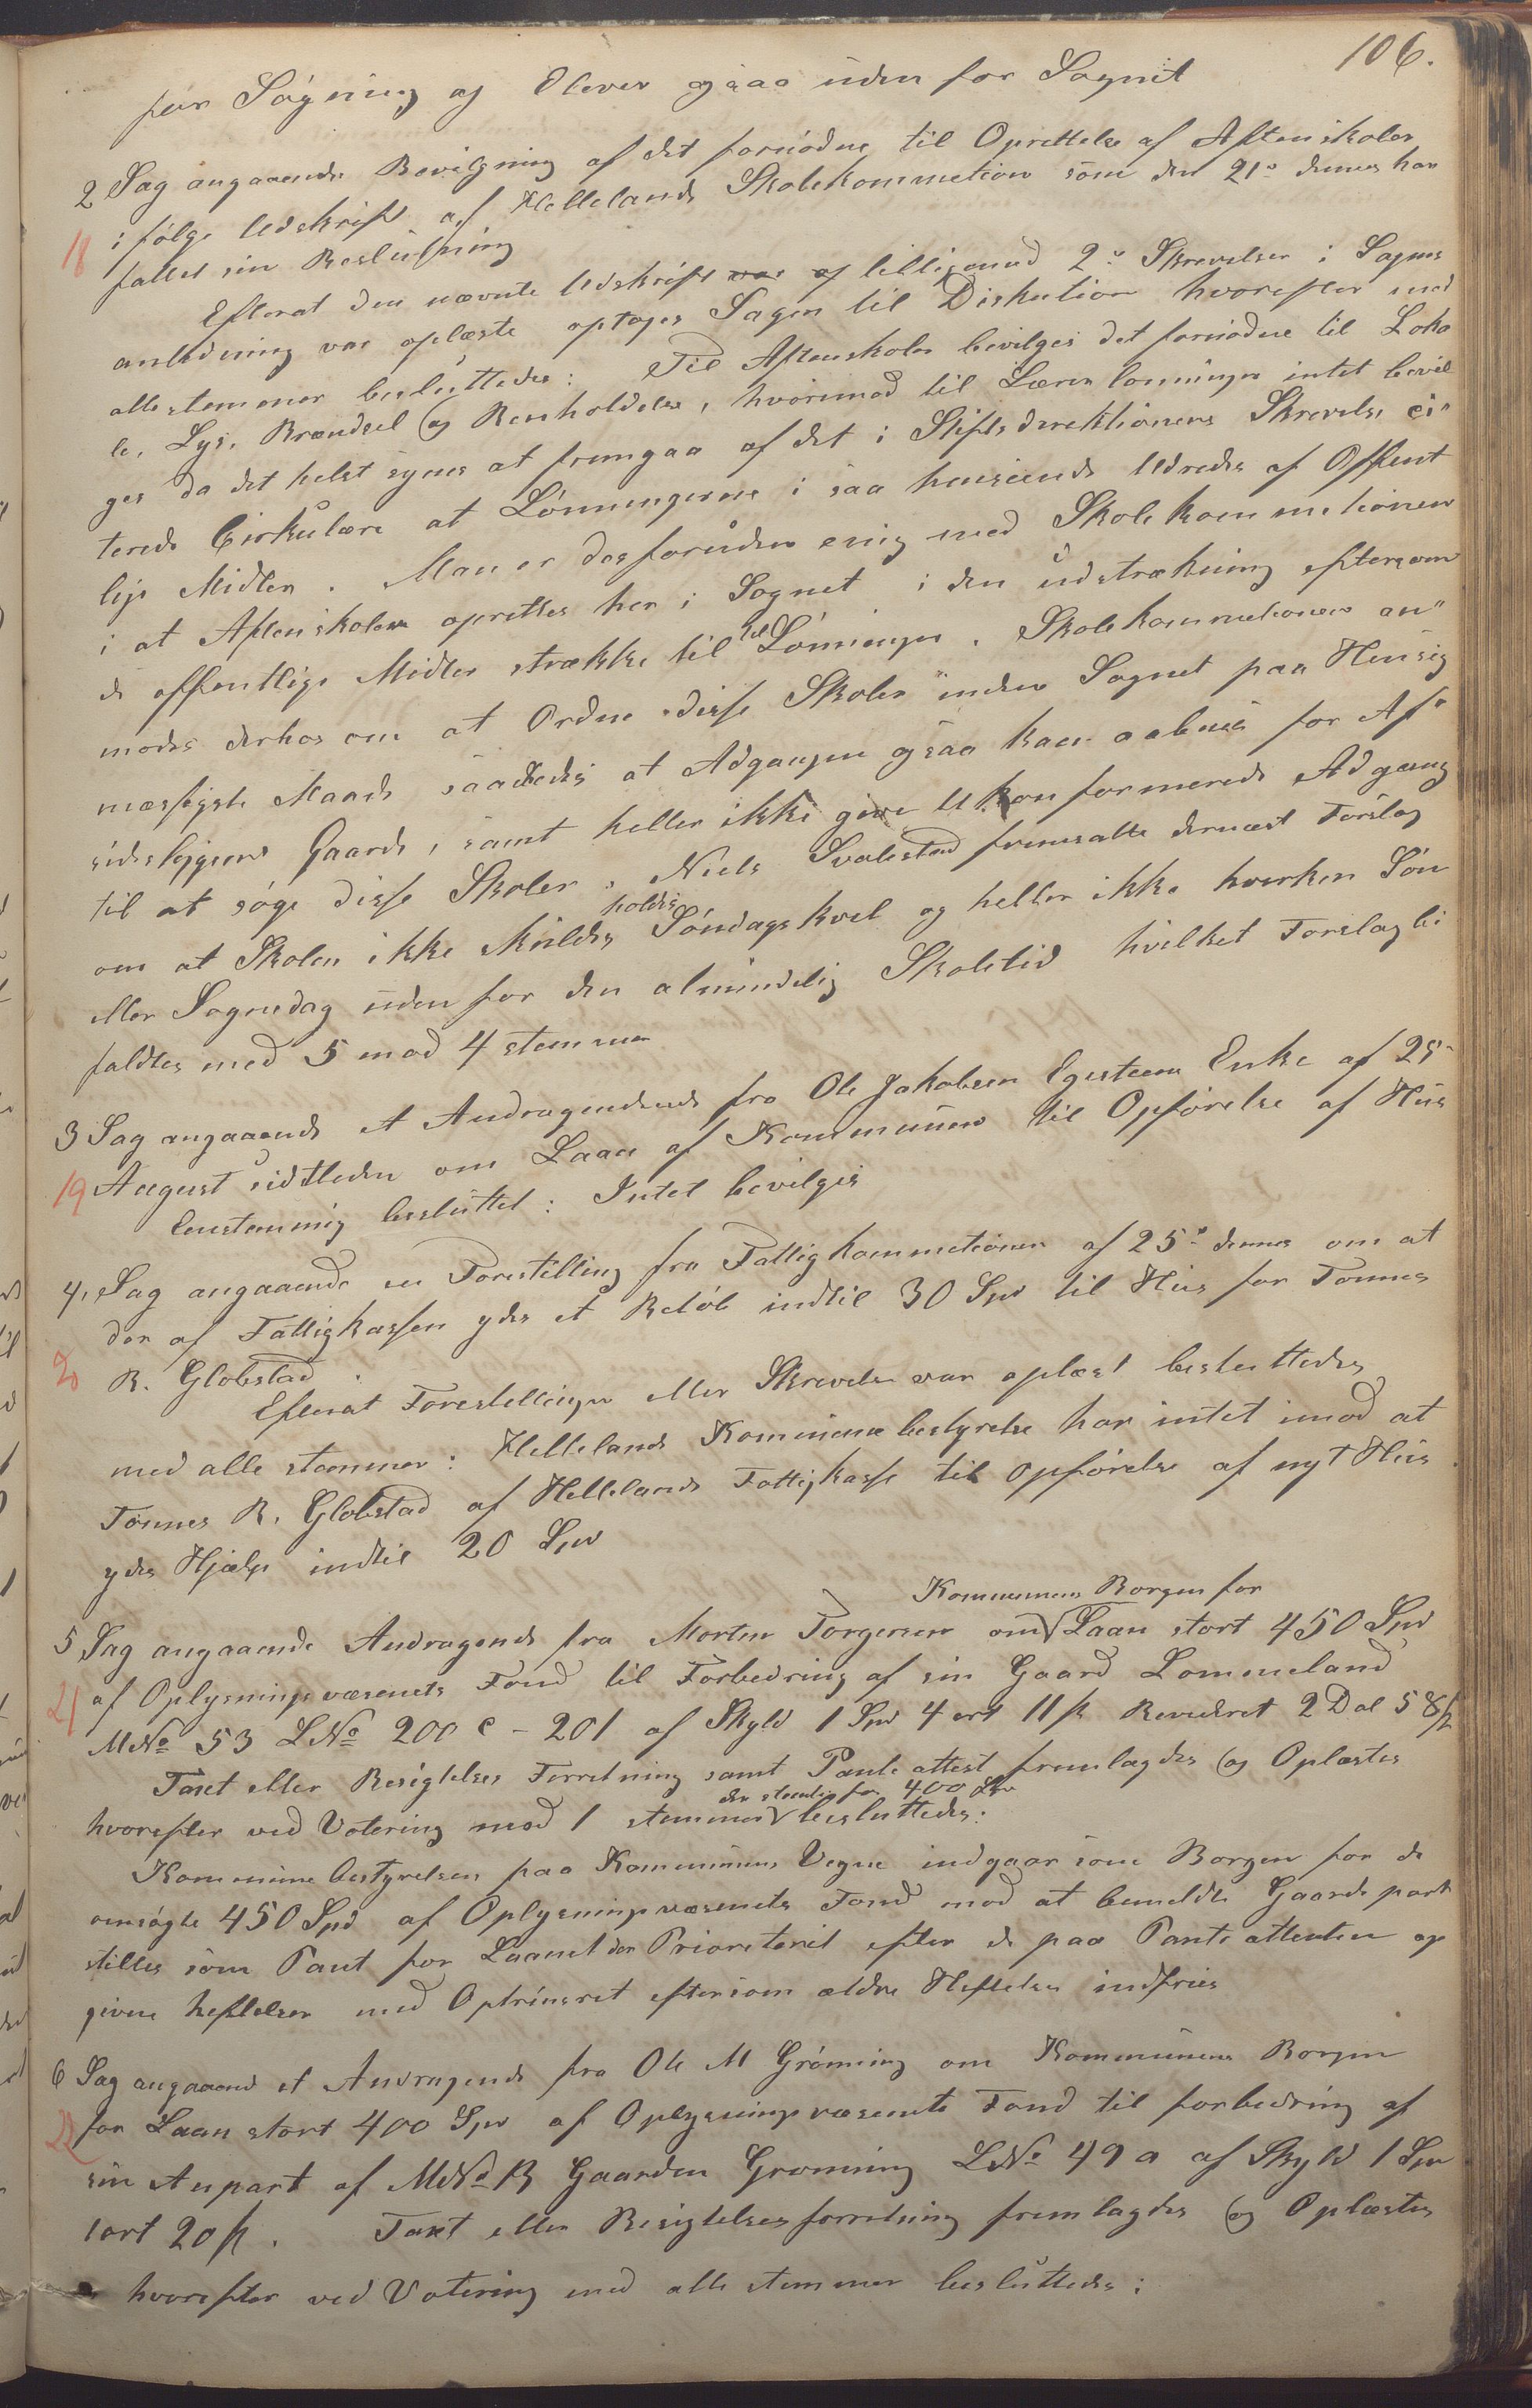 106.
for Søgning af Elever ogsaa uden for Sognet
2 Sag angaaende Bevilgning af det fornødne til Oprettelse af Aftenskoler
18 i følge Udskrift af Hellelands Skolekommetion som den 21de dennes har
fattet sin Beslutning
Efterat den nævnte Udskrift var af tilligemed 2de Skrevelser i Sagens
anledning var oplæste optoges Sagen til Diskution hvorefter med
alle stemmer besluttedes: Til Aftenskoler bevilges det fornødne til Loka
le, Lys, Brændsel og Renholdelse, hvorimod til Lærerlønninger intet bevil
ges da det helst synes at fremgaa af det i Stiftsdirektionens Skrevelse ci"
terede Cirkulære at Lønningerne i saa henseende Udredes af Offent
lige Midler. Man er desforuden enig med Skolekommetionen
i at Aftenskolen oprettes her i Sognet i den udstrækning eftersom
de offentlige Midler strække til til Lønninger. Skolekommetionen an"
modes derhos om at Ordne disse Skoler inden Sognet paa Hensig
mæssigste Maade saaledes at Adgangen ogsaa kan aabnes for Af"
sidesliggende Gaarde, samt heller ikke give Ukonformerede Adgang
til at søge disse Skoler. Niels Svalestad fremsatte dernæst Forslag
om at Skolen ikke skuldes holdes Søndagskvel og heller ikke hverken Søn
eller Sognedag uden for den almindelig Skoletid hvilket Forslag bi
faldtes med 5 mod 4 stemmer
3 Sag angaaende et Andragendende fra Ole Jakobsen Egesteens Enke af 25de
19 August sidstleden om Laan af Kommunen til Opførelse af Huus
Eenstemmig besluttet: Intet bevilges
4, Sag angaaende en Forestilling fra Fattigkommetionen af 25de dennes om at
der af Fattigkassen ydes et Beløb indtil 30 Spd til Huus for Tønnes
20 R. Globstad.
Efterat Forestillingen eller Skrevelse var oplæst besluttedes
med alle stemmer: Hellelands Kommunebestyrelse har intet imod at
Tønnes R. Globstad af Hellelands Fattigkasse til Opførelse af nyt Huus
ydes Hjælp indtil 20 Spd
5 Sag angaaende Andragende fra Morten Torgersen om Kommunens Borgen for Laan stort 450 Spd
21 af Oplysningsvæsenets Fond til Forbedring af sin Gaard Lommeland
MNo 53 LNo 200 c - 201 af Skyld 1 Spd 4 ort 11 ß Revideret 2 Dal 5 8ß
Taxt eller Besigtelses Forretning samt Panteattest fremlagdes og Oplæstes
hvorefter ved Votering mod 1 stemme der stemte for 400 Spd besluttedes:
Kommunebestyrelsen paa Kommunens Vegne indgaar som Borgen for de
omsøgte 450 Spd af Oplysningsvæsenets Fond mod at bemeldte Gaardepart
stilles som Pant for Laanet der Prioreteret efter de paa Panteattesten op
givne heftelser med Optrinsret eftersom ældre Heftelser indfries
6 Sag angaaend et Andragende fra Ole M Grønning om Kommunens Borgen
22 for Laan stort 400 Spd af Oplysningsvæsenets Fond til forbedring af
sin Anpart af MNo 13 Gaarden Grønning LNo 49 a af Skyld 1 Spd
1 ort 20 ß. Taxt eller Besigtelsesforretning fremlagdes og Oplæstes
hvorefter ved Votering med alle stemmer besluttedes: